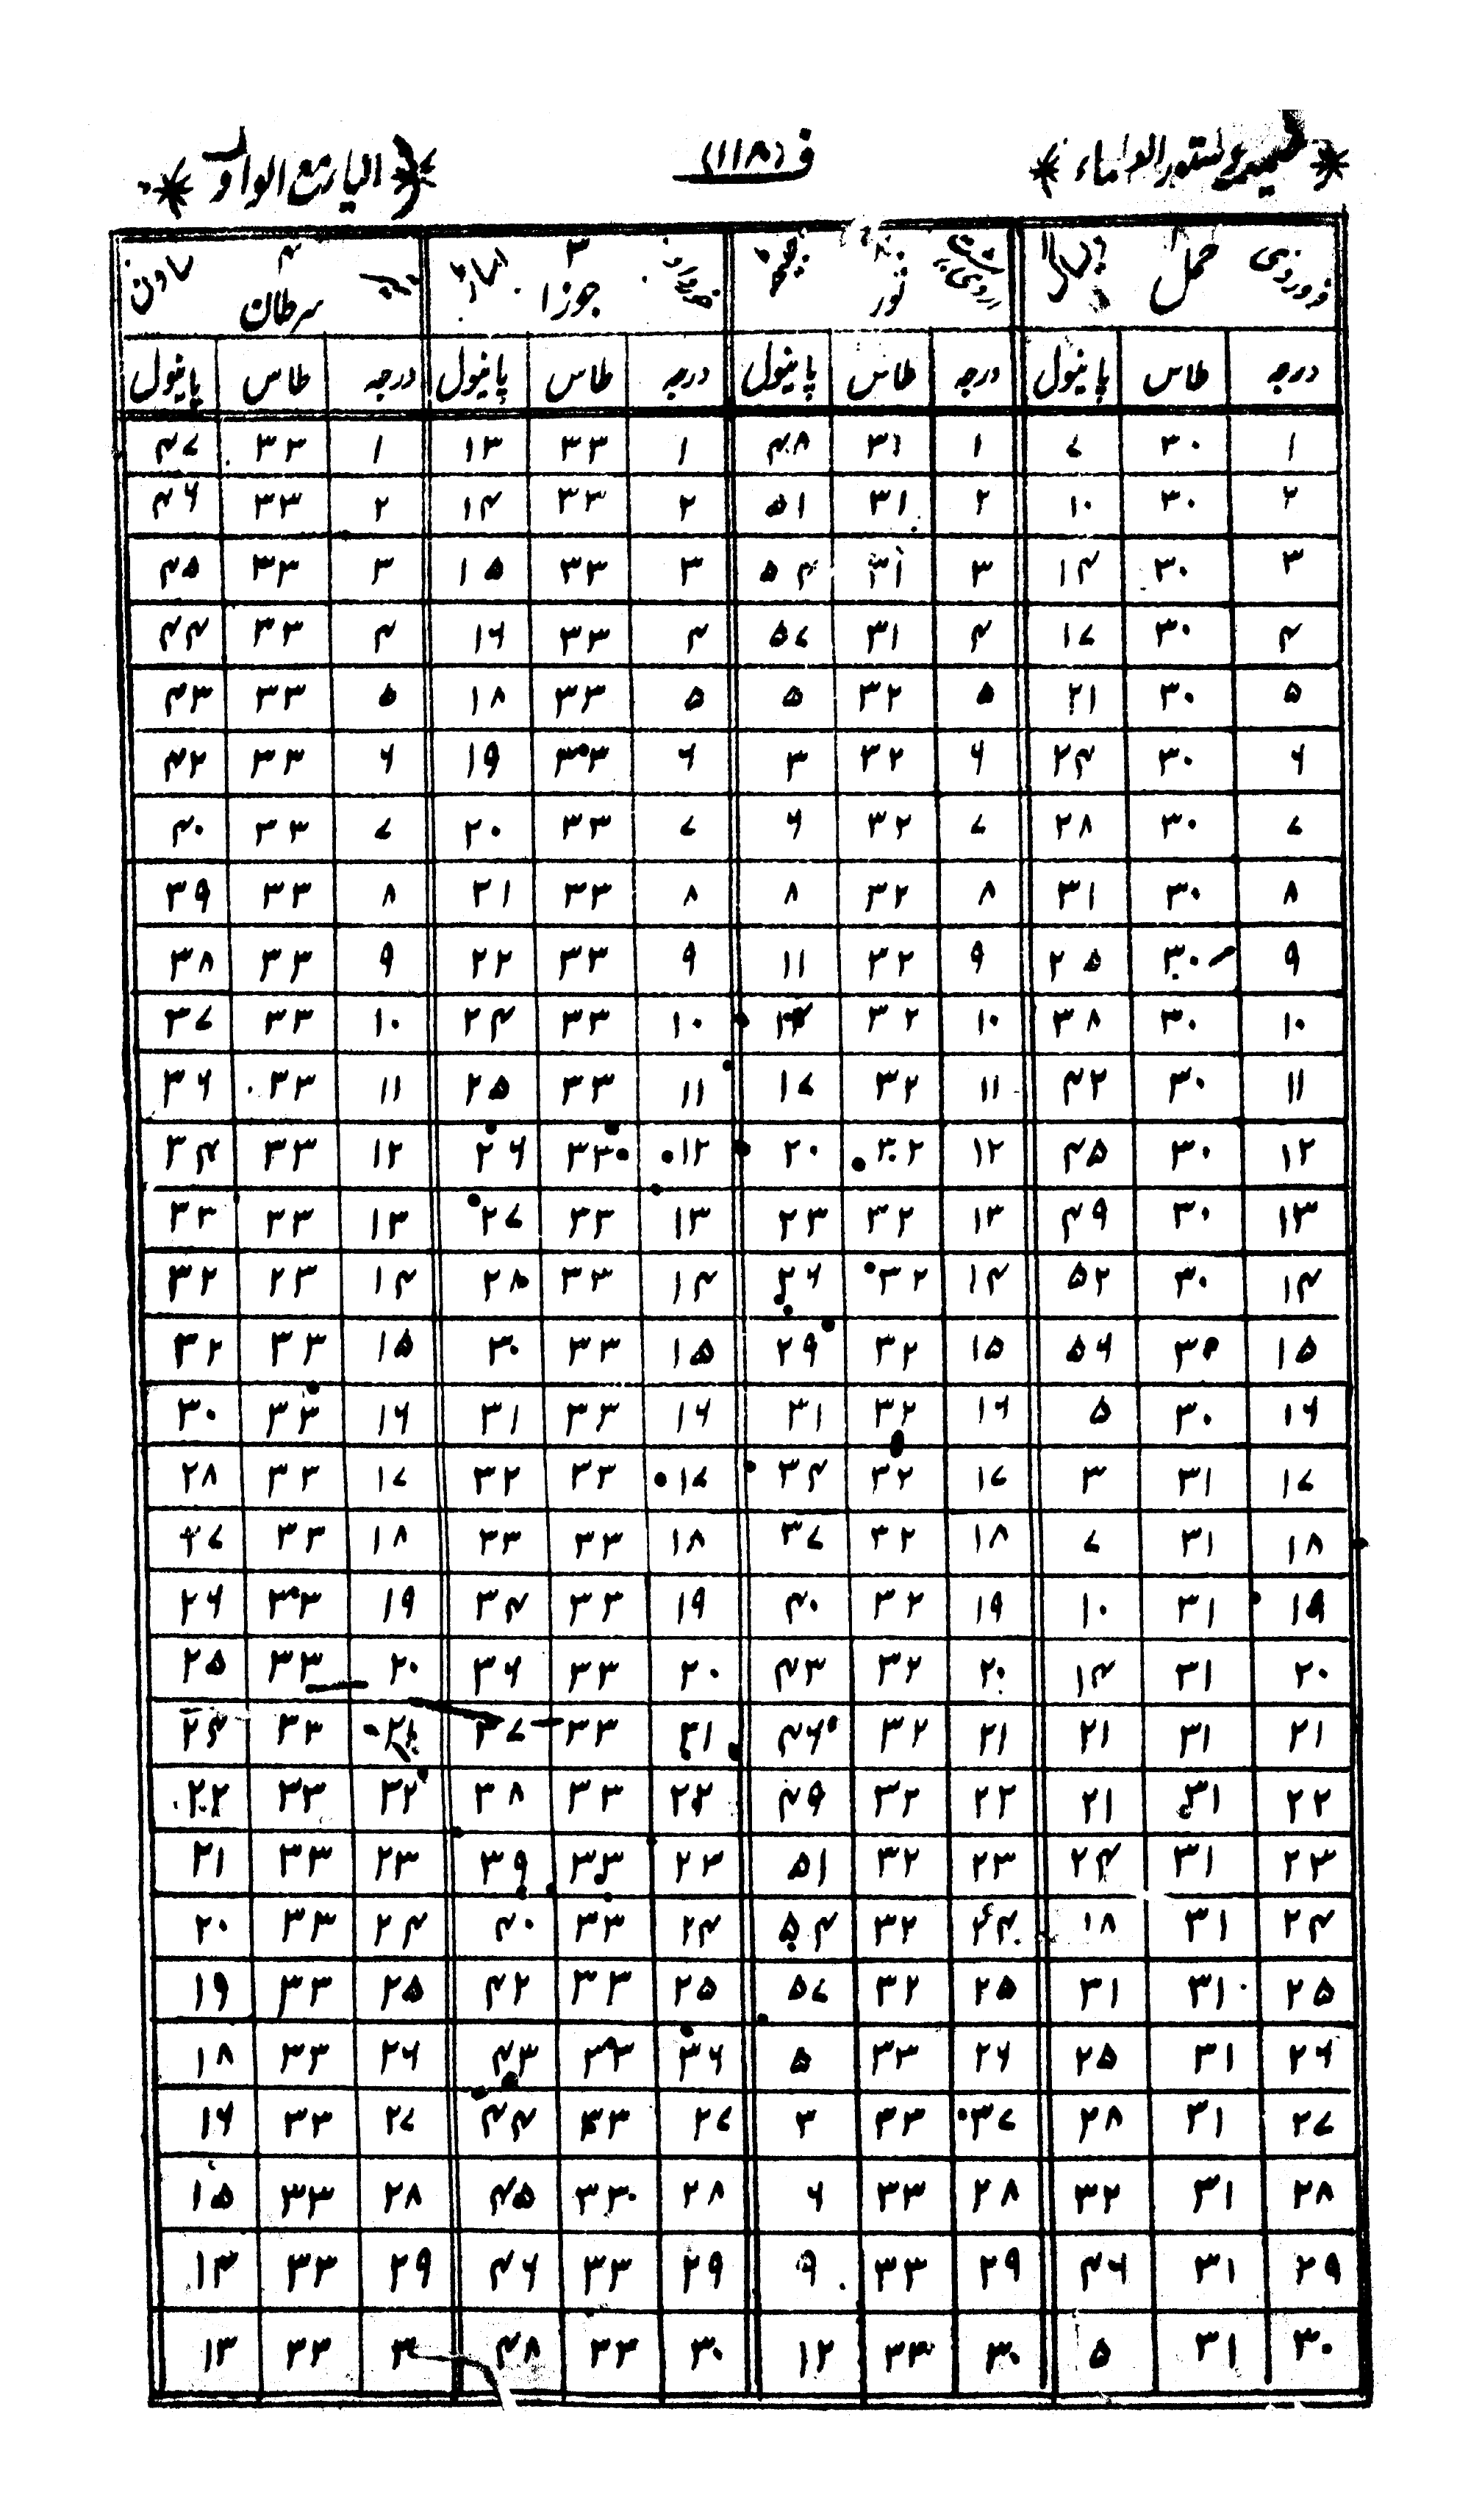 فـ (۱۱۱۸)
حمل ثور ۳ جوزا ۴ سرطان
درجہ طاس پانیول درجہ طاس پانیول درجہ طاس پانیول درجہ طاس پانیول
۱ ۳۰ ۷ ۱ ۳۱ ۴۸ ۱ ۳۳ ۱۳ ۱ ۳۳ ۴۷
۲ ۳۰ ۱۰ ۲ ۳۱ ۵۱ ۲ ۳۳ ۱۴ ۲ ۳۳ ۴۶
۳ ۳۰ ۱۴ ۳ ۳۱ ۵۴ ۳ ۳۳ ۱۵ ۳ ۳۳ ۴۵
۴ ۳۰ ۱۷ ۴ ۳۱ ۵۷ ۴ ۳۳ ۱۶ ۴ ۳۳ ۴۴
۵ ۳۰ ۲۱ ۵ ۳۲ ۵ ۵ ۳۳ ۱۸ ۵ ۳۳ ۴۳
۶ ۳۰ ۲۴ ۶ ۳۲ ۳ ۶ ۳۳ ۱۹ ۶ ۳۳ ۴۲
۷ ۳۰ ۲۸ ۷ ۳۲ ۶ ۷ ۳۳ ۲۰ ۷ ۳۳ ۴۰
۸ ۳۰ ۳۱ ۸ ۳۲ ۸ ۸ ۳۳ ۲۱ ۸ ۳۳ ۳۹
۹ ۳۰ ۲۵ ۹ ۳۲ ۱۱ ۹ ۳۳ ۲۲ ۹ ۳۳ ۳۸
۱۰ ۳۰ ۳۸ ۱۰ ۳۲ ۱۰ ۳۳ ۲۴ ۱۰ ۳۳ ۳۷
۱۱ ۳۰ ۴۲ ۱۱ ۳۲ ۱۷ ۱۱ ۳۳ ۲۵ ۱۱ ۳۳ ۳۶
۱۲ ۳۰ ۴۵ ۱۲ ۳۲ ۲۰ ۱۲ ۳۳ ۲۶ ۱۲ ۳۳ ۳۴
۱۳ ۳۰ ۴۹ ۱۳ ۳۲ ۲۳ ۱۳ ۳۳ ۲۷ ۱۳ ۳۳ ۳۳
۱۴ ۳۰ ۵۲ ۱۴ ۳۲ ۲۶ ۱۴ ۳۳ ۲۸ ۱۴ ۲۳ ۳۲
۱۵ ۳۰ ۵۶ ۱۵ ۳۲ ۲۹ ۱۵ ۳۳ ۳۰ ۱۵ ۳۳ ۳۲
۱۶ ۳۰ ۵ ۱۶ ۳۲ ۳۱ ۱۶ ۳۳ ۳۱ ۱۶ ۳۳ ۳۰
۱۷ ۳۱ ۳ ۱۷ ۳۲ ۳۴ ۱۷ ۳۳ ۳۲ ۱۷ ۳۳ ۲۸
۱۸ ۳۱ ۷ ۱۸ ۳۲ ۳۷ ۱۸ ۳۳ ۳۳ ۱۸ ۳۳ ۲۷
۱۹ ۳۱ ۱۰ ۱۹ ۳۲ ۴۰ ۱۹ ۳۳ ۳۴ ۱۹ ۳۳ ۲۶
۲۰ ۳۱ ۱۴ ۲۰ ۳۲ ۴۳ ۲۰ ۳۳ ۳۶ ۲۰ ۳۳ ۲۵
۲۱ ۳۱ ۲۱ ۲۱ ۳۲ ۴۶ ۲۱ ۳۳ ۳۷ ۲۱ ۳۳ ۲۴
۲۲ ۳۱ ۲۱ ۲۲ ۳۲ ۴۹ ۲۲ ۳۳ ۳۸ ۳۲ ۳۳ ۲۲
۲۳ ۳۱ ۲۴ ۲۳ ۳۲ ۵۱ ۲۳ ۳۳ ۳۹ ۲۳ ۳۳ ۲۱
۲۴ ۳۱ ۱۸ ۲۴ ۳۲ ۵۴ ۲۴ ۳۳ ۴۰ ۲۴ ۳۳ ۲۰
۲۵ ۳۱ ۳۱ ۲۵ ۳۲ ۵۷ ۲۵ ۳۳ ۴۲ ۲۵ ۳۳ ۱۹
۲۶ ۳۱ ۲۵ ۲۶ ۳۳ ۵ ۳۶ ۳۳ ۴۳ ۲۶ ۳۳ ۱۸
۲۷ ۳۱ ۳۸ ۳۷ ۳۳ ۳ ۲۷ ۳۳ ۴۴ ۲۷ ۳۳ ۱۶
۲۸ ۳۱ ۳۲ ۲۸ ۳۳ ۶ ۲۸ ۳۳ ۴۵ ۲۸ ۳۳ ۱۵
۲۹ ۳۱ ۴۶ ۲۹ ۳۳ ۹ ۲۹ ۳۳ ۴۶ ۲۹ ۳۳ ۱۳
۳۰ ۳۱ ۵ ۳۰ ۳۳ ۱۲ ۳۰ ۳۳ ۴۸ ۳ ۳۳ ۱۳